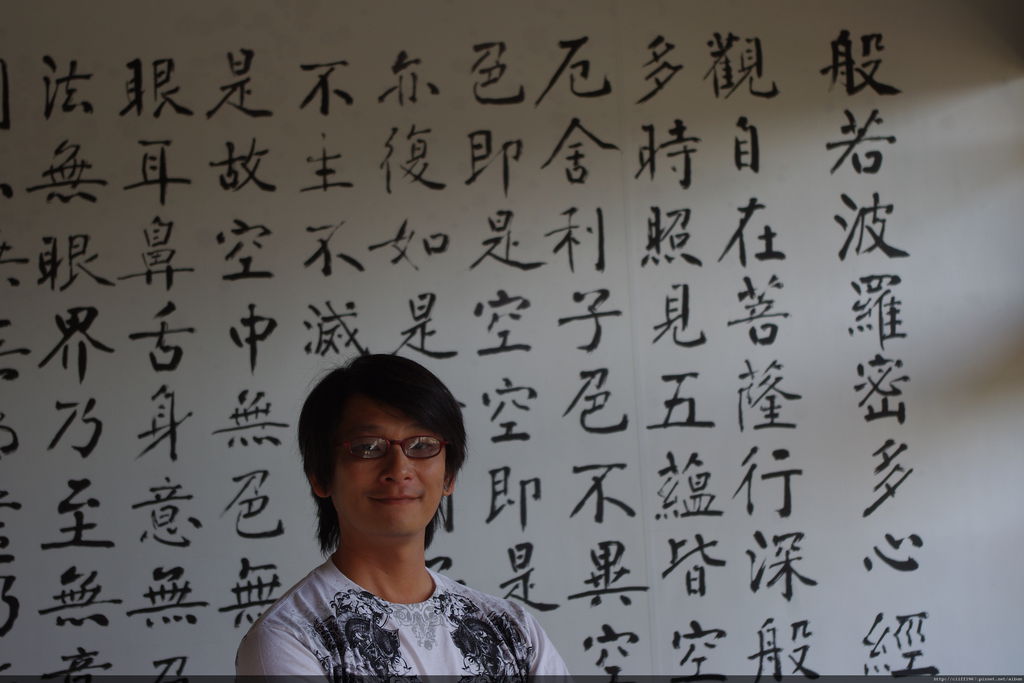 般若波羅密多心經
觀自在菩薩行深般
多時照見五蘊皆空
厄舍利子色不異空
色即是空空即是
亦復如是
不生不滅
是故空中無色無
眼耳鼻舌身意無色
法無眼界乃至無意